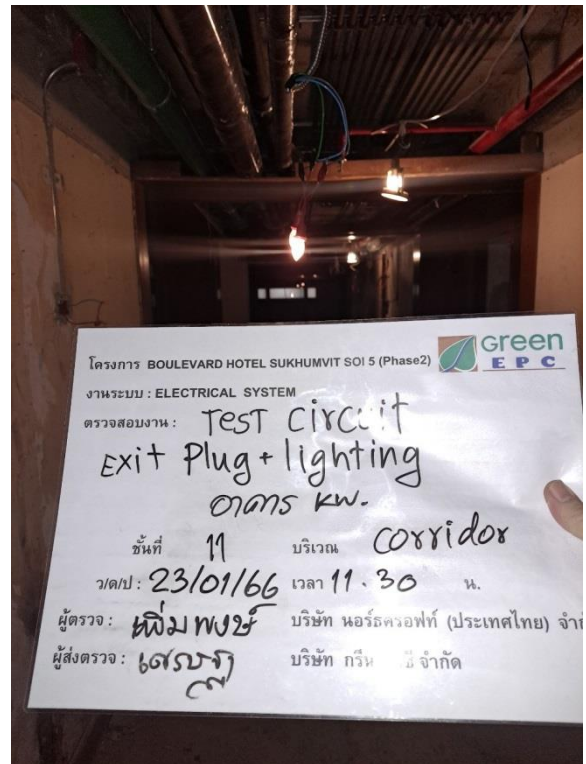 Green
EPC
โครงการ BOULEVARD HOTEL SUKHUMVIT SOI 5 (Phase2)
งานระบบ : ELECTRICAL SYSTEM
ตรวจสอบงาน : TEST Circuit
Exit Plug + lighting
อาคาร KW.
ชั้นที่ 11 บริเวณ Corridor
ว/ด/ป : 23/01/66 เวลา 11.30 น.
ผู้ตรวจ : เพิ่มพงษ์ บริษัท นอร์ธครอฟท์ (ประเทศไทย) จำกั
ผู้ส่งตรวจ : บริษัท กรีน ซี จำกัด